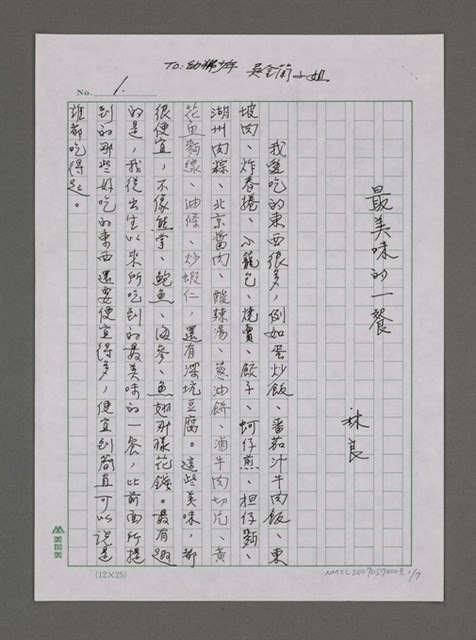 TO:幼獅少年 吳金蘭小姐
No. 1.
最美味的一餐
林良
我愛吃的東西很多,例如蛋炒飯、番茄汁牛肉飯、東
坡肉、炸春捲、小籠包、燒賣、餃子、蚵仔煎、担仔麵、
湖州肉粽、北京醬肉、酸辣湯、蔥油餅、滷牛肉切片、黃
花魚麵線、油條、炒蝦仁,還有深坑豆腐。這些美味,都
很便宜,不像熊掌、鮑魚、海參、魚翅那樣花錢。最有趣
的是,我從出生以來所吃到的最美味的一餐,比前面所提
到的那些好吃的東西還要便宜得多,便宜到簡直可以說是
誰都吃得起。
美加美
(12×25)
NMTL20070570003 1/7